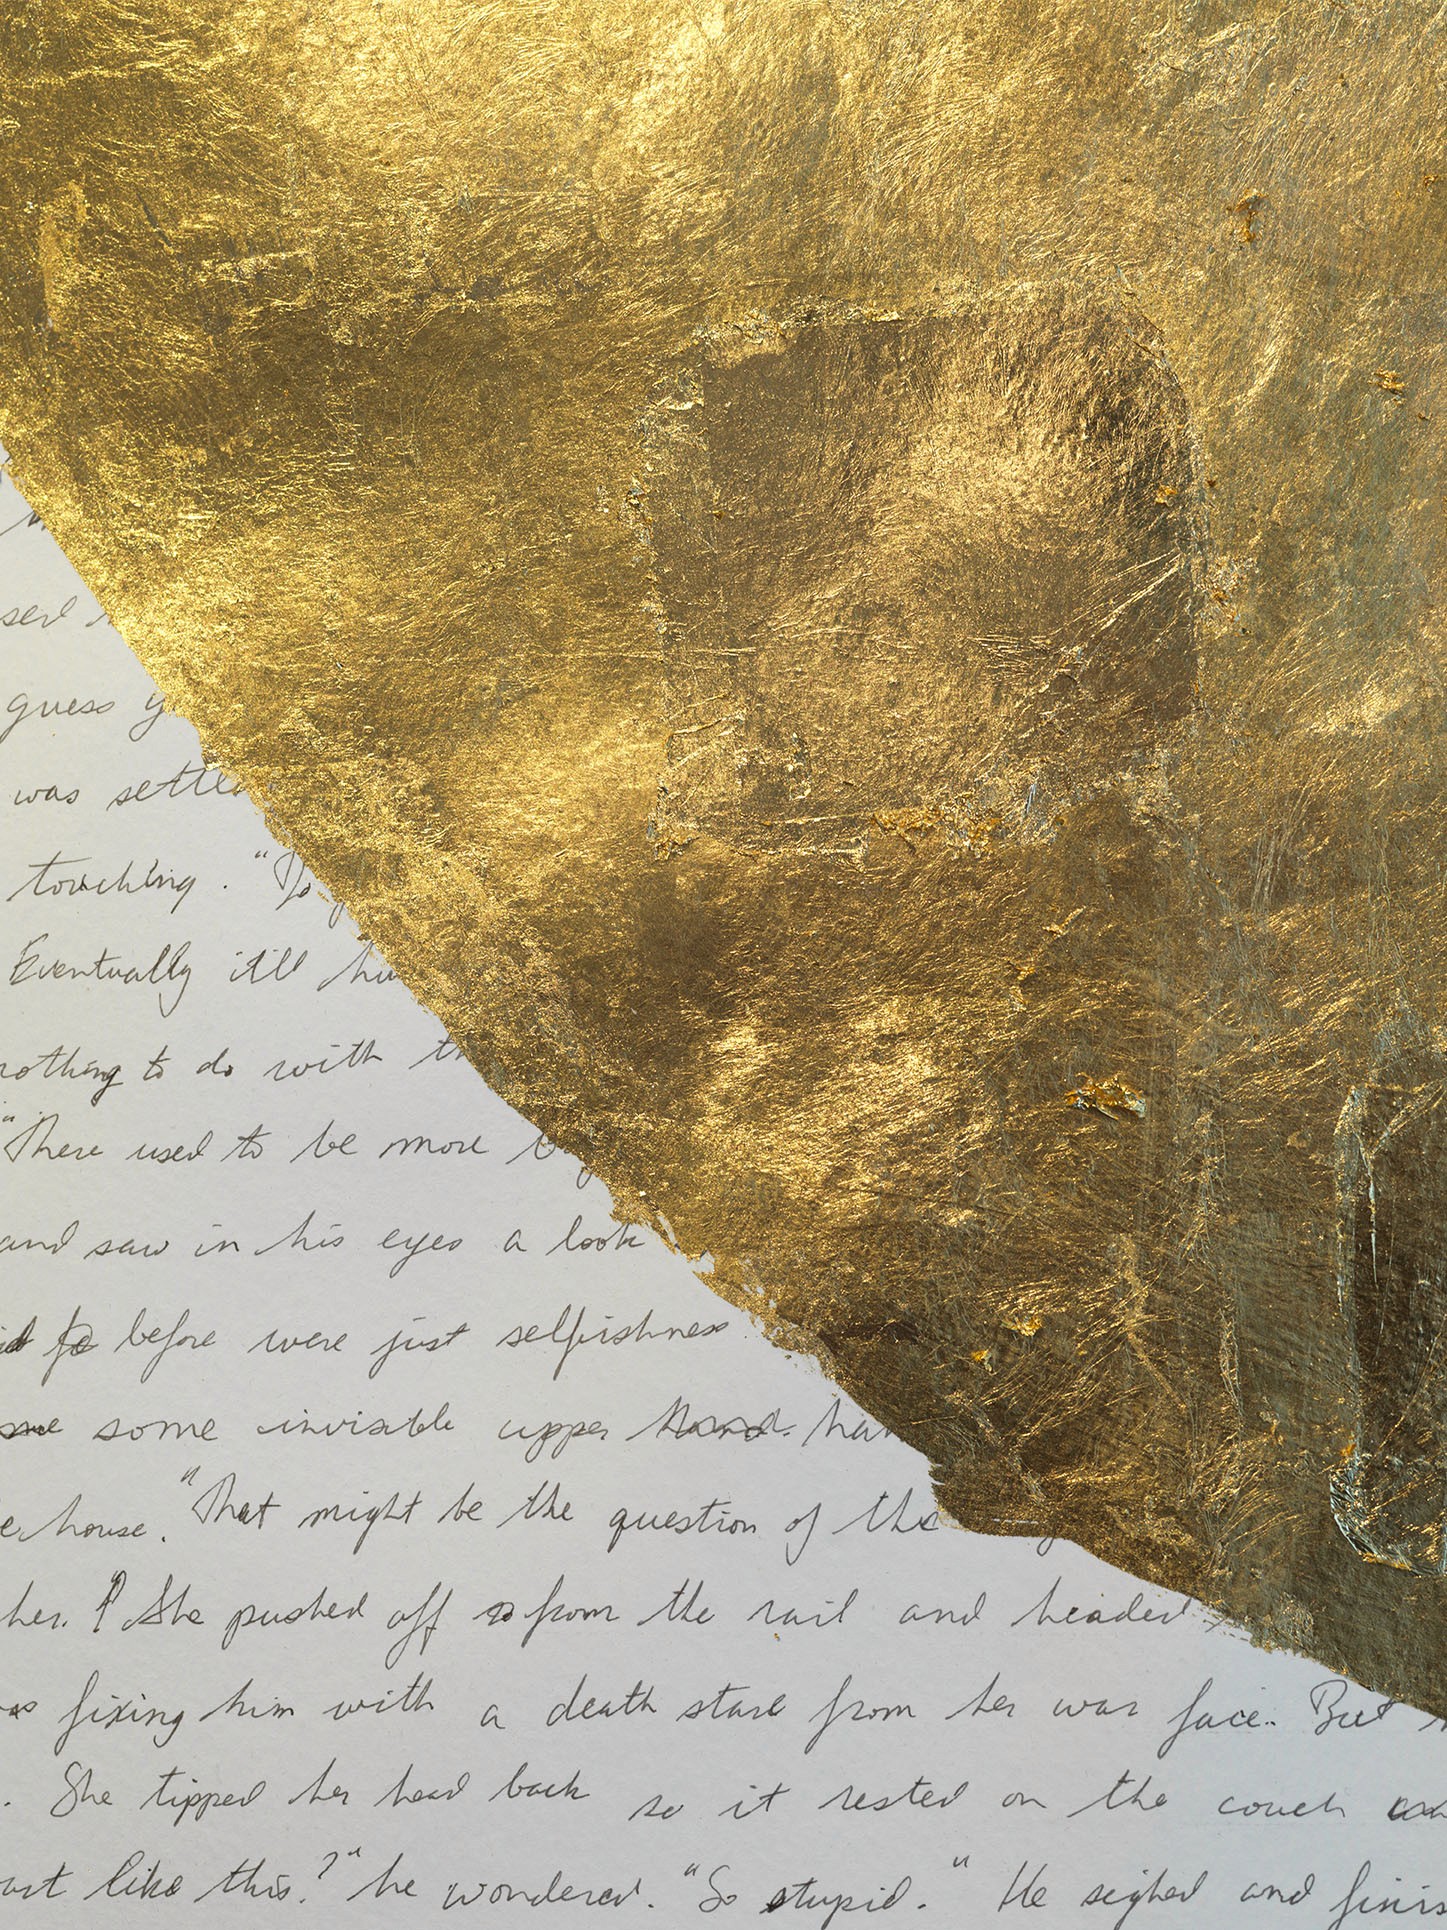 guess
was
touching. "Do
Eventually it'll
nothing to do with
"There used to be more
and saw in his eyes a look
before were just selfishness
some invisible upper
house. "That might be the question of the
her. She pushed off from the rail and headed
fixing him with a death stare from her war face. But
. She tipped her head back so it rested on the couch
like this?" he wondered. "So stupid." He sighed and